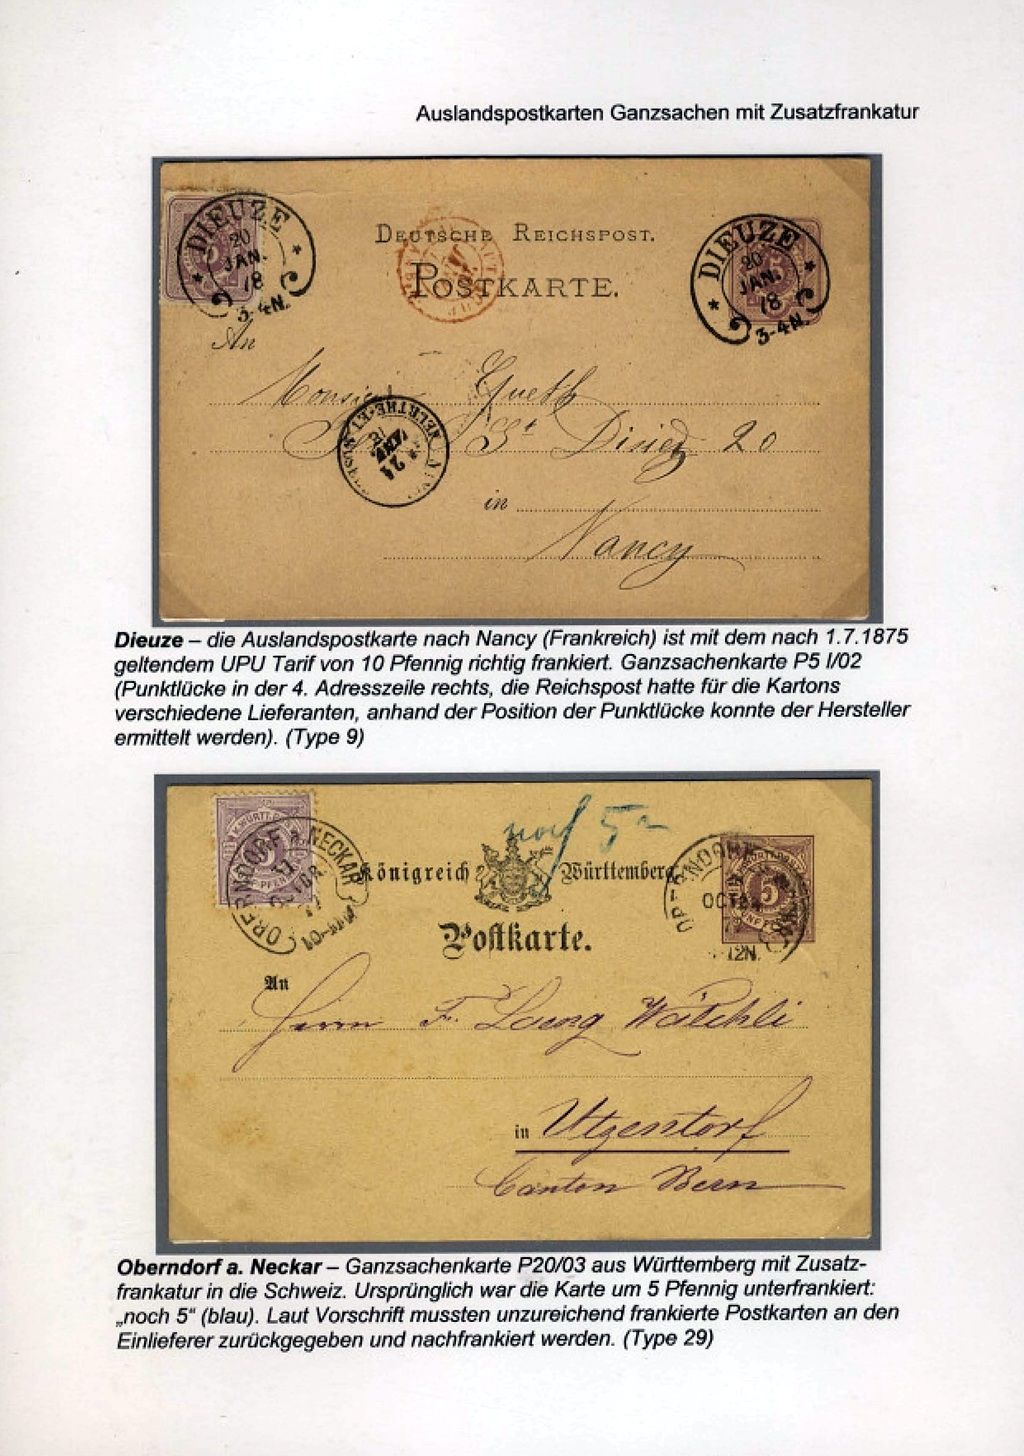 Auslandspostkarten Ganzsachen mit Zusatzfrankatur
DIEUZE
20
JAN.
78
3-4N.
DEUTSCHE REICHSPOST.
POSTKARTE.
DIEUZE
20
JAN.
78
3-4N.
An
Monsieur
St Diziez 20
MEURTHE-ET-
in
Nancy
Dieuze – die Auslandspostkarte nach Nancy (Frankreich) ist mit dem nach 1.7.1875
geltendem UPU Tarif von 10 Pfennig richtig frankiert. Ganzsachenkarte P5 I/02
(Punktlücke in der 4. Adresszeile rechts, die Reichspost hatte für die Kartons
verschiedene Lieferanten, anhand der Position der Punktlücke konnte der Hersteller
ermittelt werden). (Type 9)
noch 5
OBERNDORF a. NECKAR
Königreich Württemberg
5
OCT
12N.
Postkarte.
An
Herrn F. Wälchli
in Utzenstorf
Canton Bern
Oberndorf a. Neckar – Ganzsachenkarte P20/03 aus Württemberg mit Zusatz-
frankatur in die Schweiz. Ursprünglich war die Karte um 5 Pfennig unterfrankiert:
„noch 5" (blau). Laut Vorschrift mussten unzureichend frankierte Postkarten an den
Einlieferer zurückgegeben und nachfrankiert werden. (Type 29)